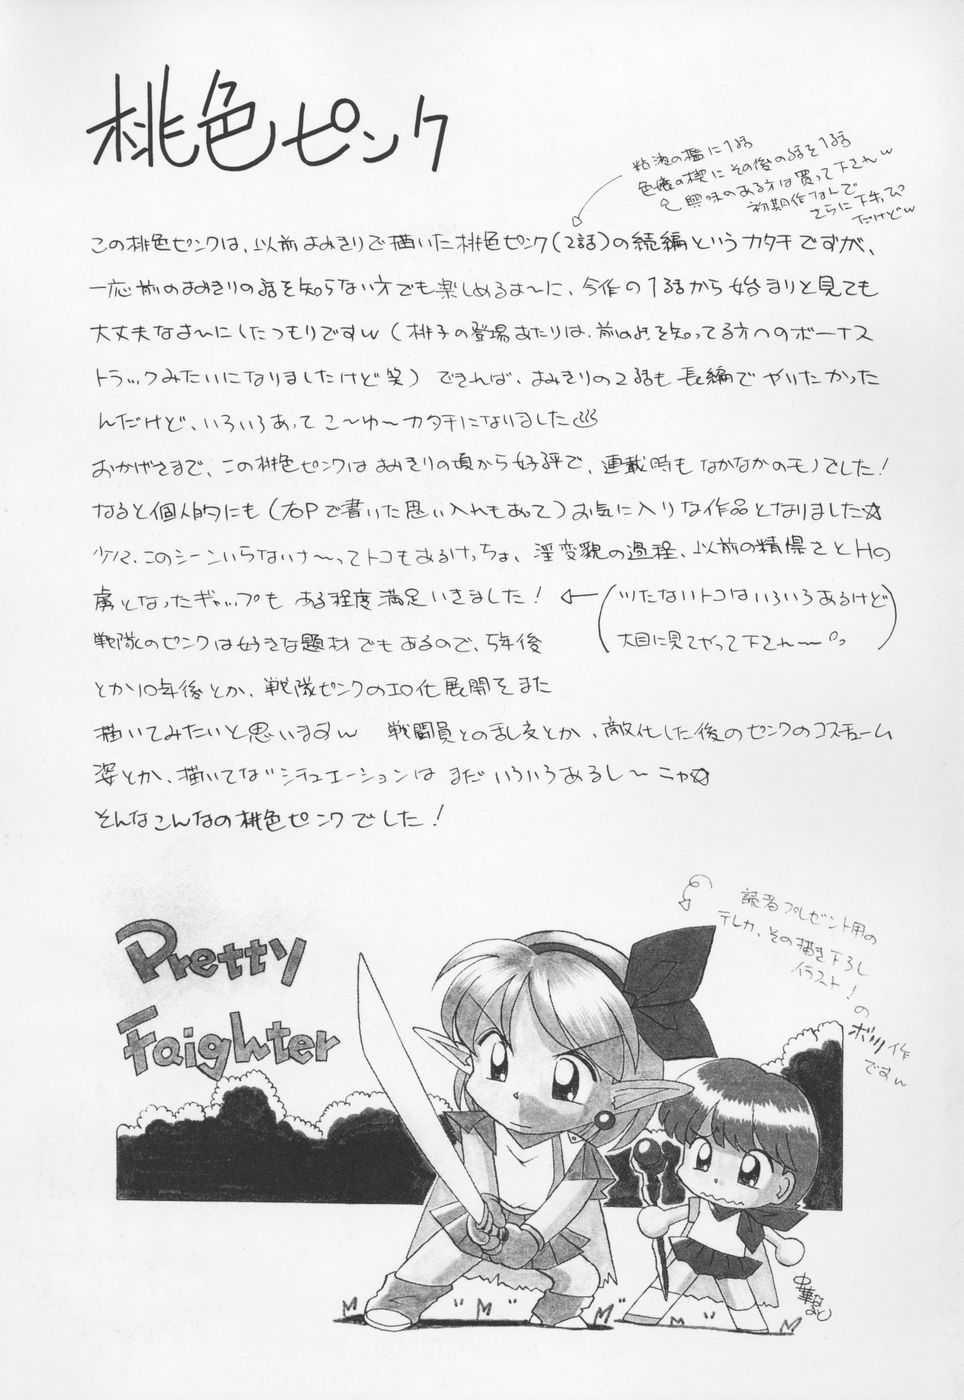 桃色ピンク
粘液の檻に1話
色魔の楔にその後の話を1話
興味のある方は買って下されw
初期作なんで
さらに下手っぴ
だけどw
この桃色ピンクは、以前よみきりで描いた桃色ピンク(2話)の続編というカタチですが、
一応前のよみきりの話を知らない方でも楽しめるよ〜に、今作の1話から始まりと見ても
大丈夫なよ〜にしたつもりですw(桃子の登場あたりは、前のよみを知ってる方へのボーナス
トラックみたいになりましたけど笑)できれば、よみきりの2話も長編でやりたかった
んだけど、いろいろあってこ〜ゆ〜カタチになりました
おかげさまで、この桃色ピンクはよみきりの頃から好評で、連載時もなかなかのモノでした!
なると個人的にも(右Pで書いた思い入れもあって)お気に入りな作品となりました☆
少々、このシーンいらないけ〜ってトコもあるけっちょ、淫変貌の過程、以前の精悍さとHの
虜となったギャップもある程度満足いきました!←(ツたないトコはいろいろあるけど
大目に見てやって下され〜)
戦隊のピンクは好きな題材でもあるので、5年後
とか10年後とか、戦隊ピンクのエロ化展開をまた
描いてみたいと思いますw 戦闘員との乱交とか、敵化した後のピンクのコスチューム
姿とか、描いてないシチュエーションはまだいろいろあるし〜ニャ☆
そんなこんなの桃色ピンクでした!
読者プレゼント用の
テレカ、その描き下ろし
イラスト!
の
ボツ作
ですw
Pretty
Faighter
中華なると